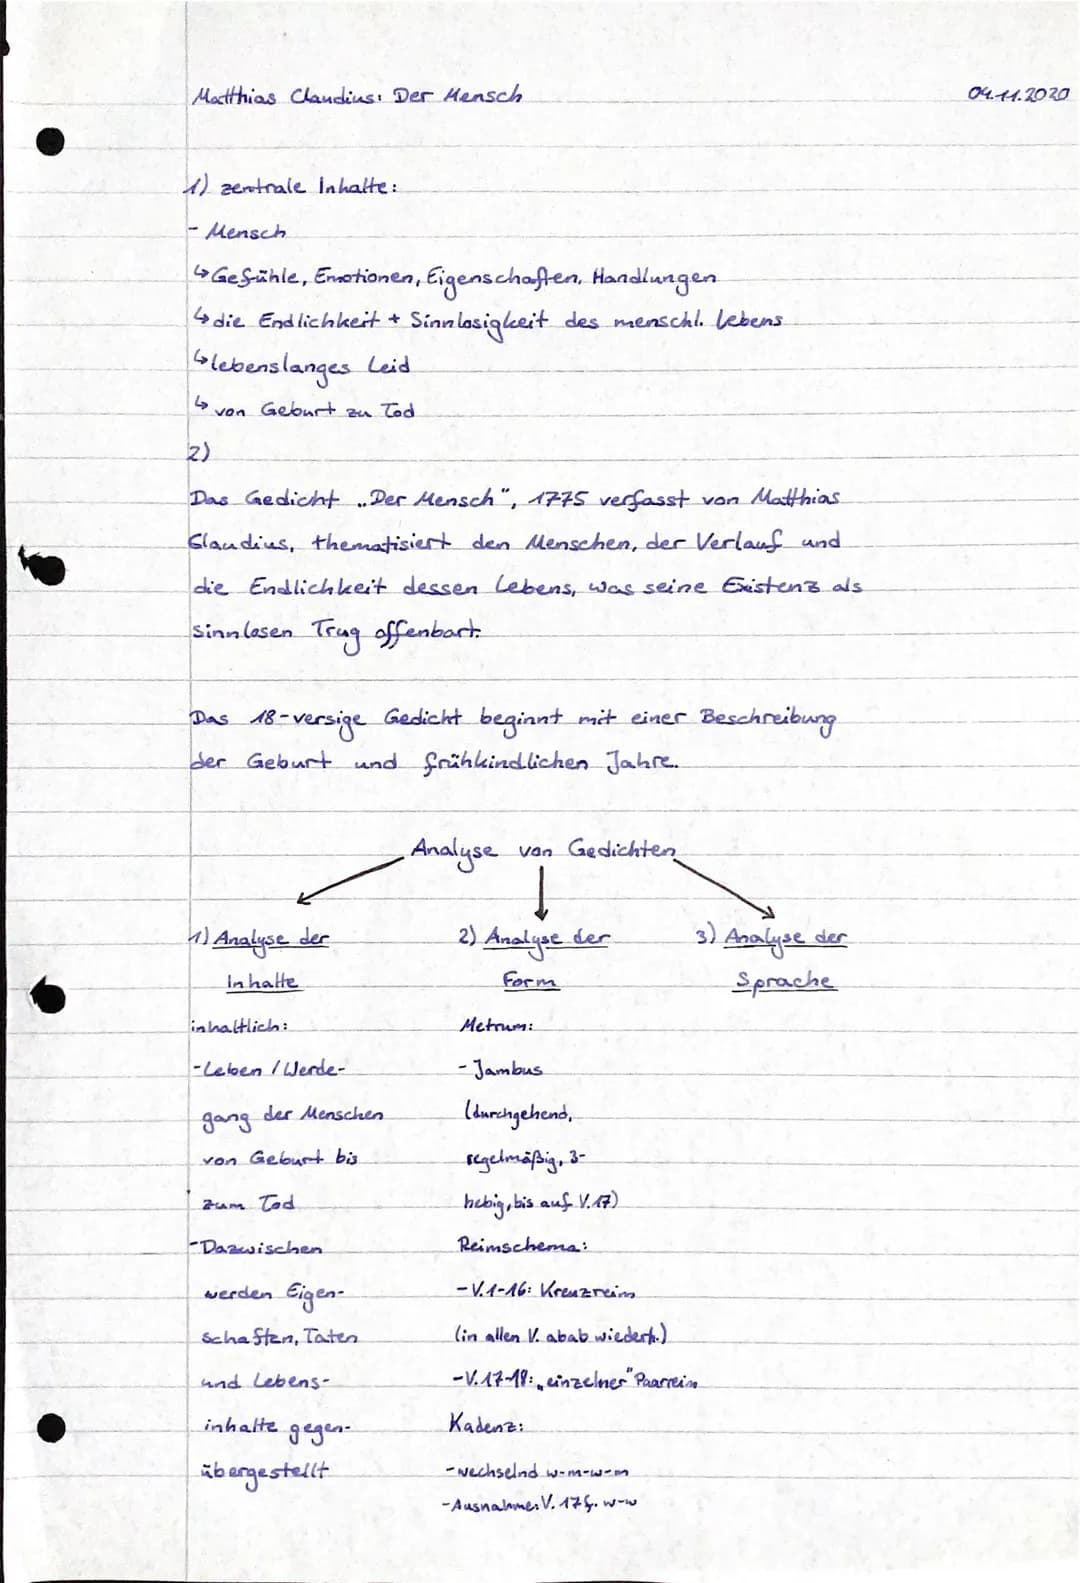 Matthias Claudius: Der Mensch 04.11.2020
1) zentrale Inhalte:
- Mensch
↳ Gefühle, Emotionen, Eigenschaften, Handlungen
↳ die Endlichkeit + Sinnlosigkeit des menschl. Lebens
↳ lebenslanges Leid
↳ von Geburt zu Tod
2)
Das Gedicht „Der Mensch", 1775 verfasst von Matthias
Claudius, thematisiert den Menschen, der Verlauf und
die Endlichkeit dessen Lebens, was seine Existenz als
sinnlosen Trug offenbart.
Das 18-versige Gedicht beginnt mit einer Beschreibung
der Geburt und frühkindlichen Jahre.
Analyse von Gedichten
1) Analyse der
Inhalte
inhaltlich:
- Leben / Werde-
gang der Menschen
von Geburt bis
zum Tod
- Dazwischen
werden Eigen-
schaften, Taten
und Lebens-
inhalte gegen-
übergestellt
2) Analyse der
Form
Metrum:
- Jambus
(durchgehend,
regelmäßig, 3-
hebig, bis auf V.17)
Reimschema:
- V.1-16: Kreuzreim
(in allen V. abab wiederh.)
- V.17-18: „einzelner" Paarreim
Kadenz:
- wechselnd w-m-w-m
- Ausnahme: V. 17f. w-w
3) Analyse der
Sprache